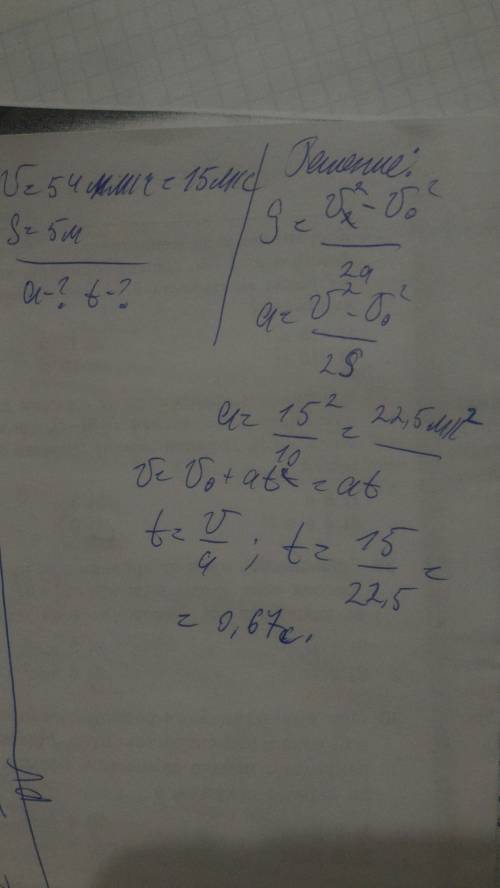 v = 54 км/ч = 15 м/с
S = 5м
a-? t-?
Решение:
S = (vₓ² - v₀²) / 2a
a = (v² - v₀²) / 2S
a = 15² / 10 = 22,5 м/с²
v = v₀ + at = at
t = v / a ; t = 15 / 22,5 =
= 0,67с.